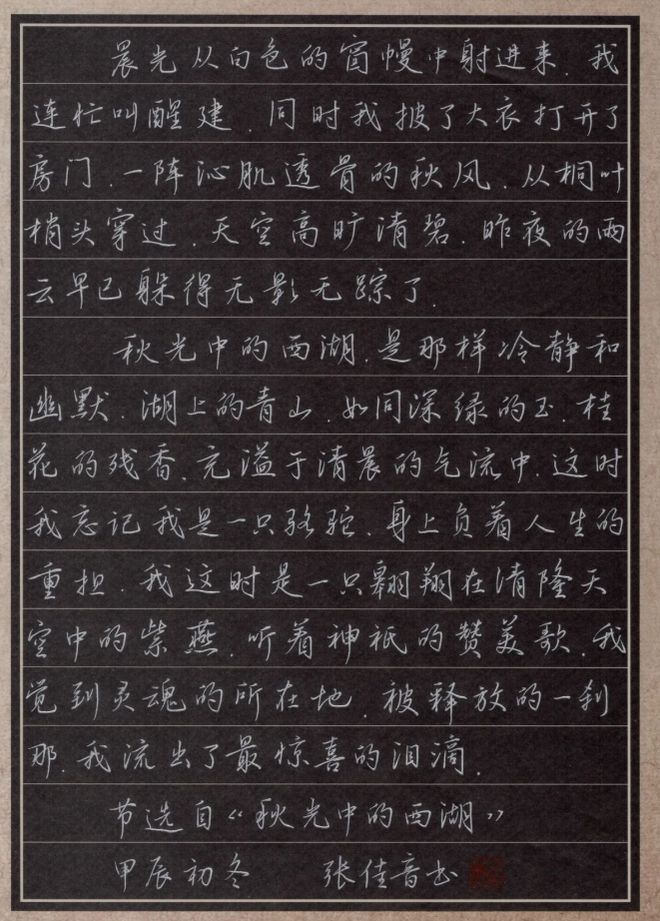 晨光从白色的窗幔中射进来.我
连忙叫醒建.同时我披了大衣打开了
房门.一阵沁肌透骨的秋风.从桐叶
梢头穿过.天空高旷清碧.昨夜的雨
云早已躲得无影无踪了.
秋光中的西湖.是那样冷静和
幽默.湖上的青山.如同深绿的玉.桂
花的残香.充溢于清晨的气流中.这时
我忘记我是一只骆驼.身上负着人生的
重担.我这时是一只翱翔在清隆天
空中的紫燕.听着神祇的赞美歌.我
觉到灵魂的所在地.被释放的一刹
那.我流出了最惊喜的泪滴.
节选自《秋光中的西湖》
甲辰初冬 张佳音书